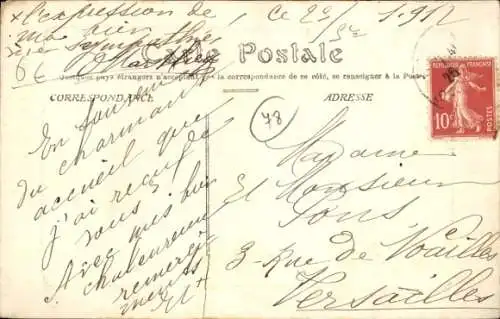 l'expression de
ma
sympathie
Ce
6€
Carte Postale
Quelques pays étrangers n'acceptent pas la correspondance de ce côté, se renseigner à la Poste
CORRESPONDANCE
ADRESSE
78
REPUBLIQUE FRANÇAISE
10c
POSTES
En souvenir
du charmant
accueil que
j'ai reçu de
vous
Avec mes
chaleureux
remerci
ements
Et +
Madame
et Monsieur
Pons
3 Rue de Noailles
Versailles